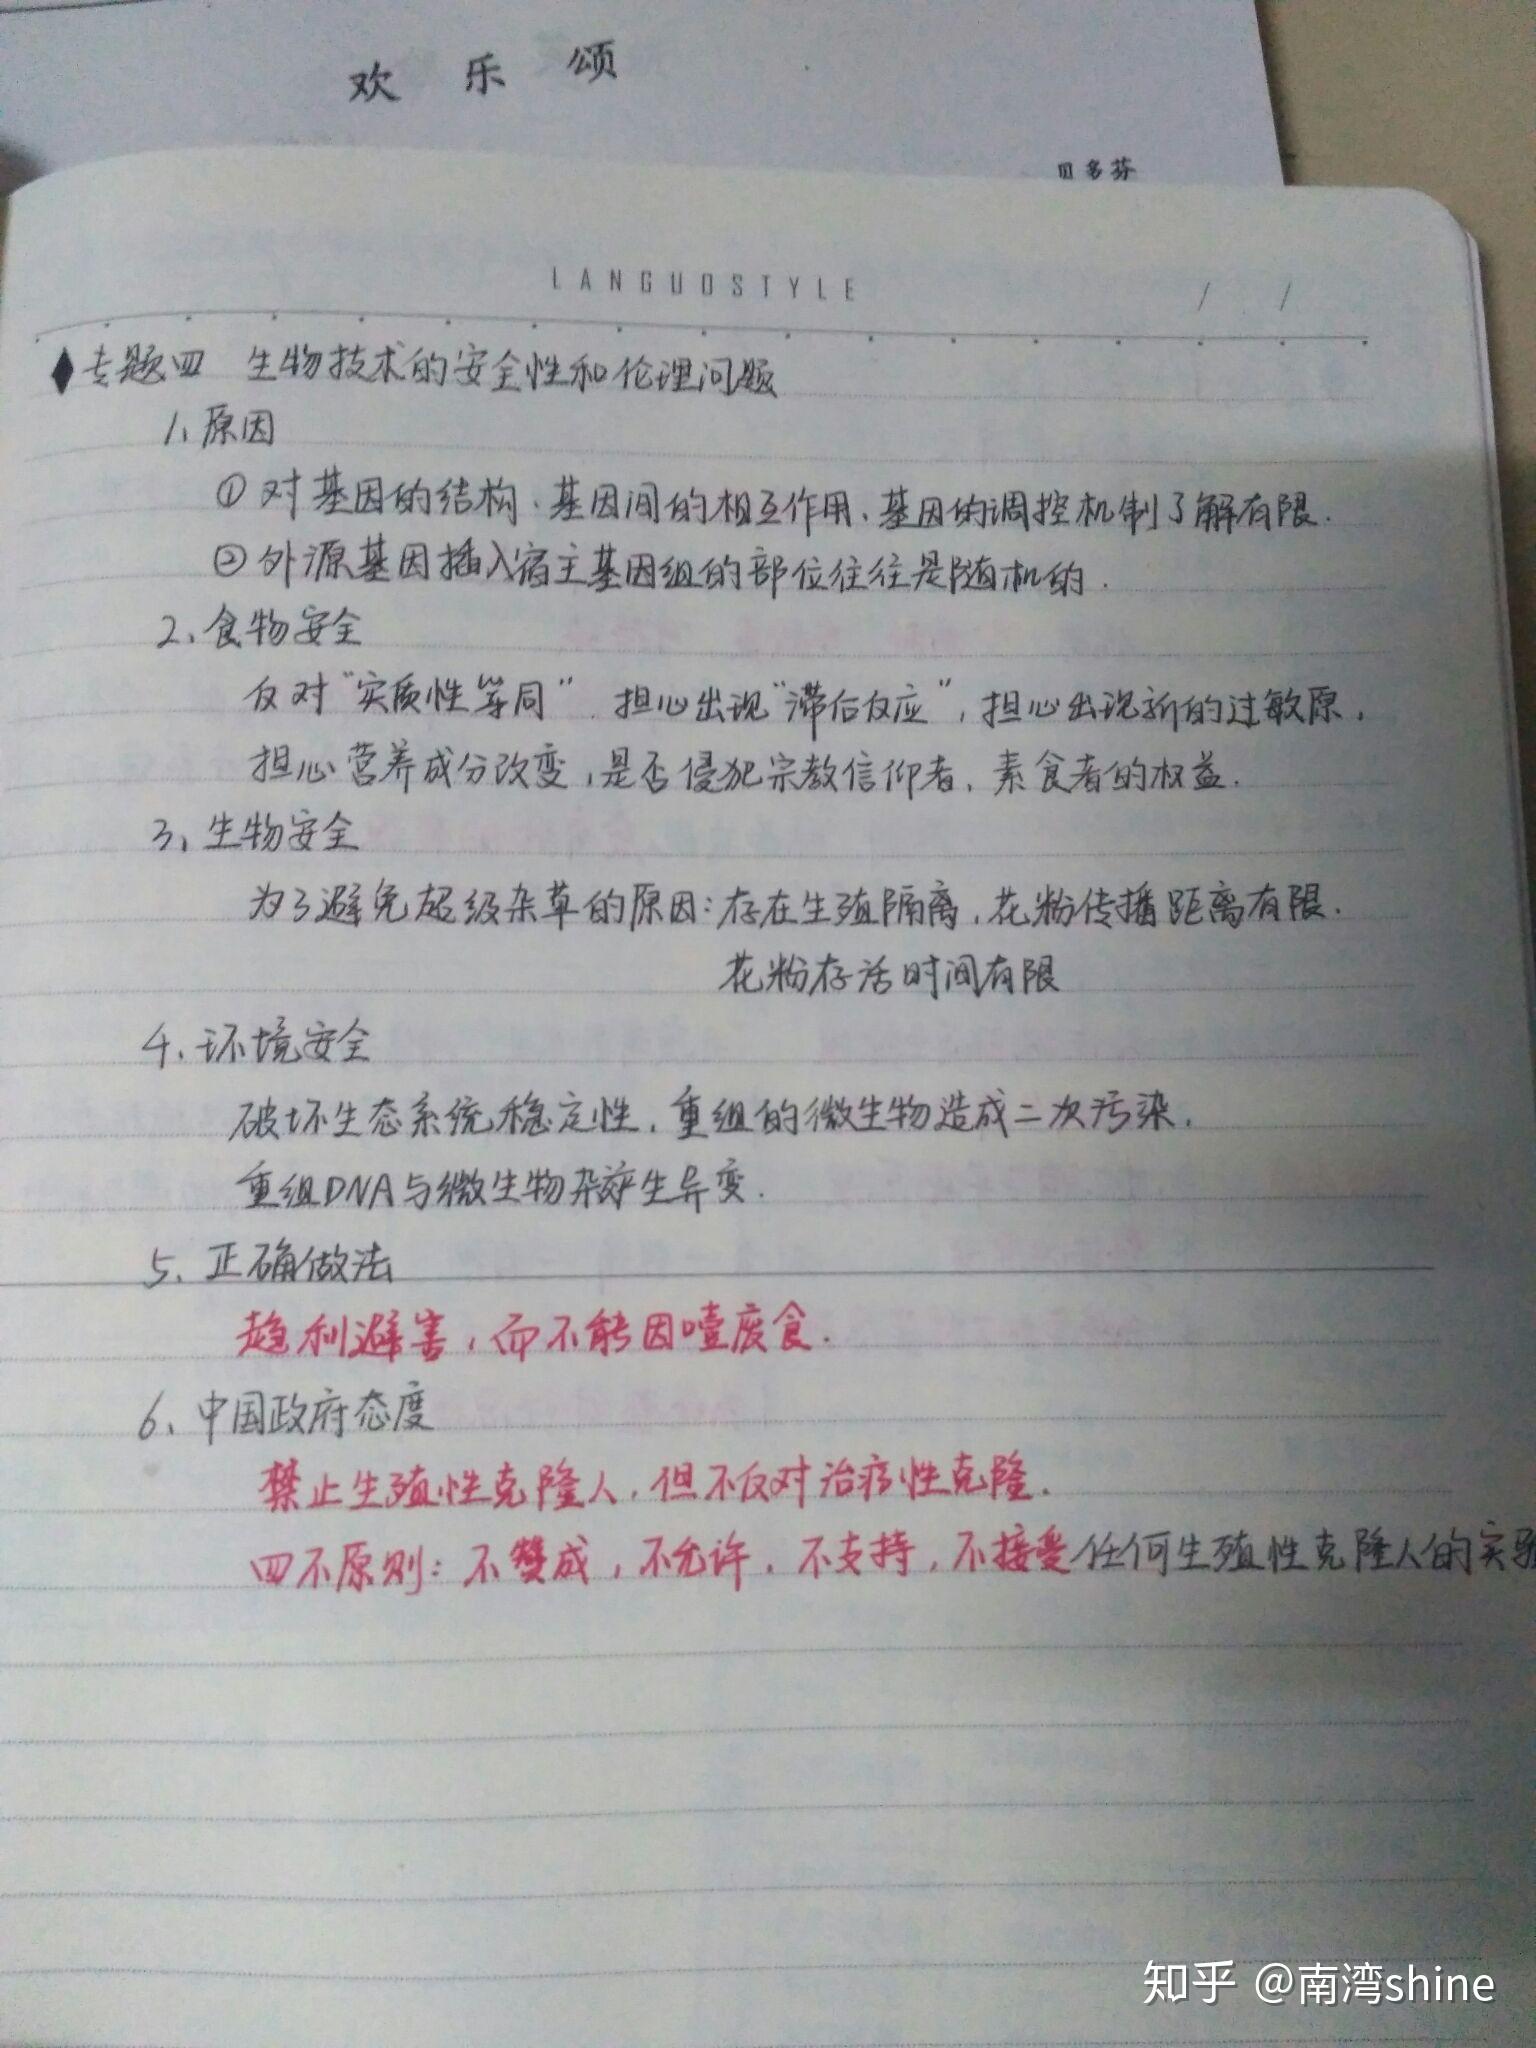 欢乐颂
贝多芬
LANGUOSTYLE
/ /
◆专题四 生物技术的安全性和伦理问题
1、原因
①对基因的结构、基因间的相互作用、基因的调控机制了解有限.
②外源基因插入宿主基因组的部位往往是随机的.
2、食物安全
反对“实质性等同”.担心出现“滞后反应”,担心出现新的过敏原,
担心营养成分改变,是否侵犯宗教信仰者、素食者的权益.
3、生物安全
为了避免超级杂草的原因:存在生殖隔离,花粉传播距离有限.
花粉存活时间有限
4、环境安全
破坏生态系统稳定性,重组的微生物造成二次污染,
重组DNA与微生物杂交产生异变.
5、正确做法
趋利避害,而不能因噎废食.
6、中国政府态度
禁止生殖性克隆人,但不反对治疗性克隆.
四不原则:不赞成,不允许,不支持,不接受任何生殖性克隆人的实验
知乎 @南湾shine